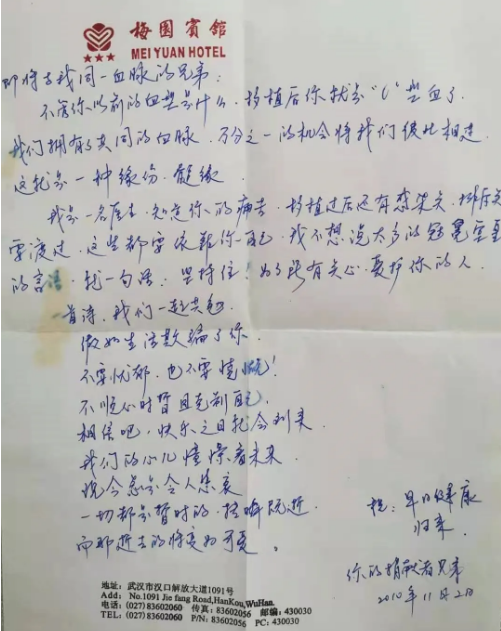 梅園賓館
MEI YUAN HOTEL
即将与我同一血脉的兄弟:
不管你以前的血型是什么,移植后你就是“O”型血了
我们拥有了共同的血脉,万分之一的机会将我们彼此相连
这就是一种缘份,髓缘
我是一名医生,知道你的痛苦,移植过后还有感染关,排斥关
要渡过,这些都要依靠你自己,我不想说太多的冠冕堂皇
的言语,就一句话:坚持住!为了所有关心、爱护你的人.
一首诗,我们一起共勉
假如生活欺骗了你
不要忧郁,也不要愤慨!
不顺心时暂且克制自己
相信吧,快乐之日就会到来
我们的心儿憧憬着未来
现今总是令人悲哀
一切都是暂时的,转瞬既逝
而那逝去的将变为可爱。
祝:早日健康
归来
你的捐献者兄弟
2010年11月2日
地址:武汉市汉口解放大道1091号
Add: No.1091 Jie fang Road,HanKou,WuHan.
电话:(027) 83602060 传真:83602056 邮编:430030
TEL:(027) 83602060 P/N:83602056 PC:430030